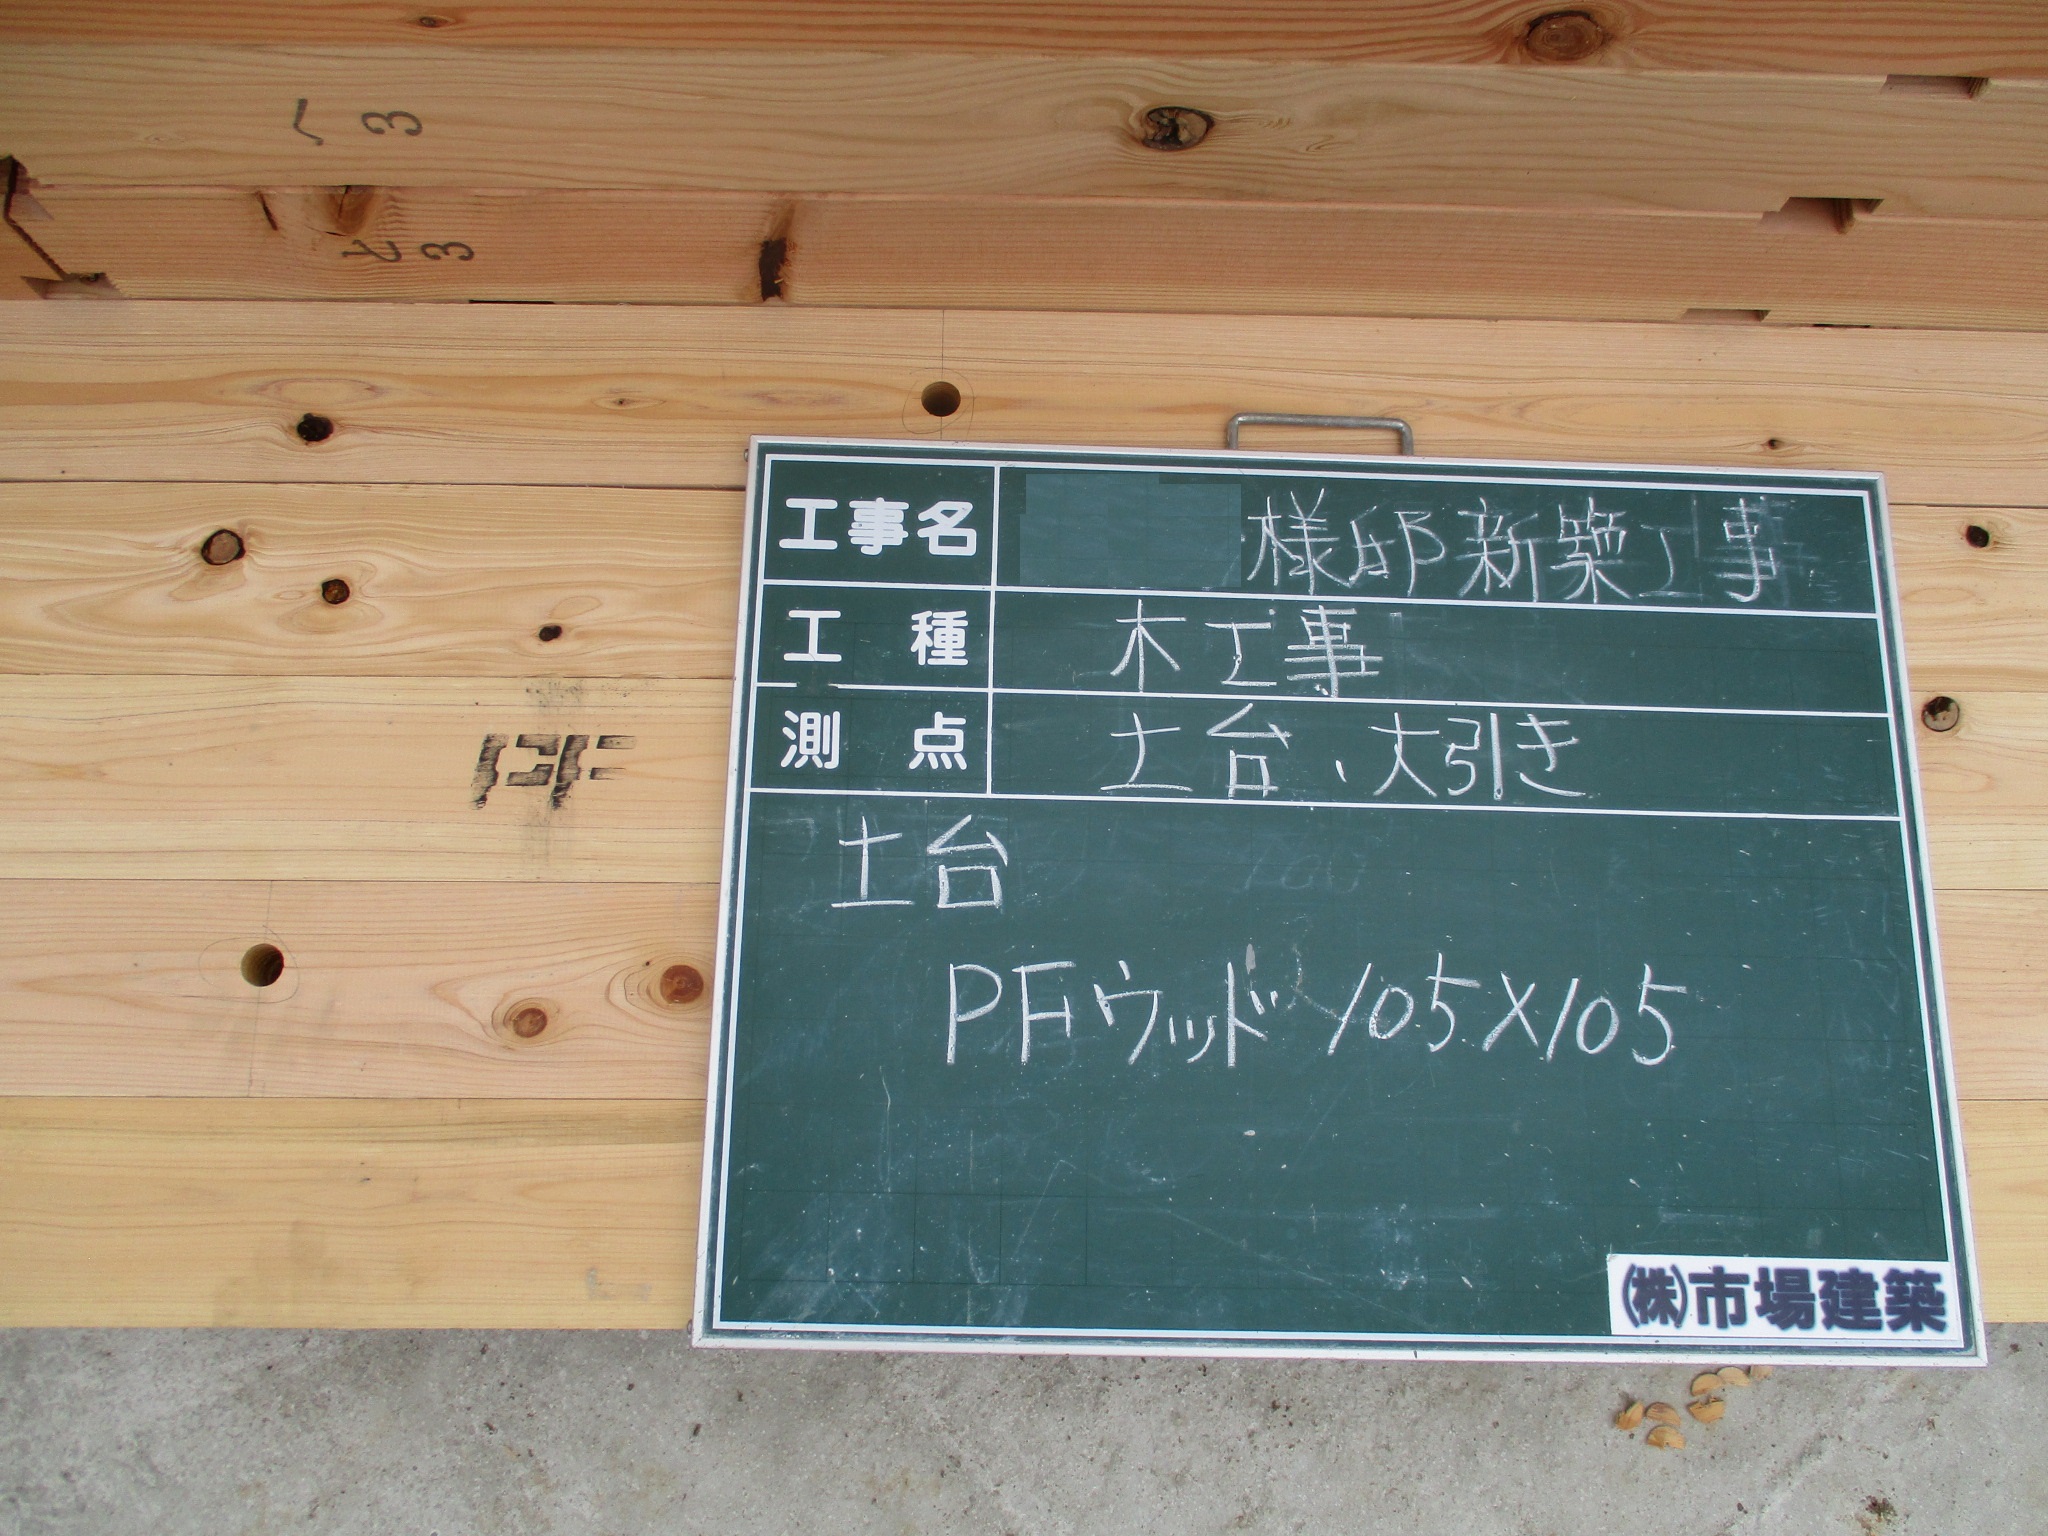 へ 3
七 3
工事名 様邸新築工事
工種 木工事
測点 土台、大引き
土台
PFウッド 105×105
㈱市場建築